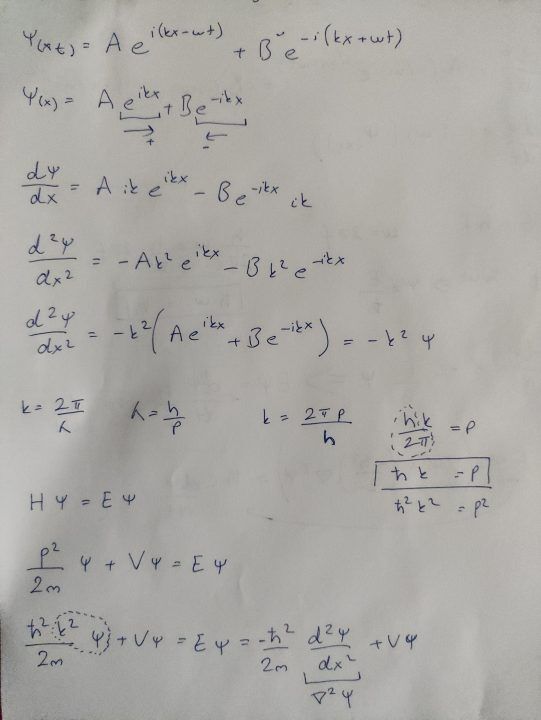 Ψ(xt) = A e^{i(kx-wt)} + B e^{-i(kx+wt)}
Ψ(x) = A e^{ikx} + B e^{-ikx}
+ -
dΨ/dx = A ik e^{ikx} - B e^{-ikx} ik
d²Ψ/dx² = -Ak² e^{ikx} - B k² e^{-ikx}
d²Ψ/dx² = -k² (A e^{ikx} + B e^{-ikx}) = -k² Ψ
k = 2π/λ λ = h/p k = 2πp/h hk/2π = p
ħ k = p
ħ² k² = p²
H Ψ = E Ψ
p²/2m Ψ + VΨ = E Ψ
ħ² k²/2m Ψ + VΨ = E Ψ = -ħ²/2m d²Ψ/dx² + VΨ
∇²Ψ